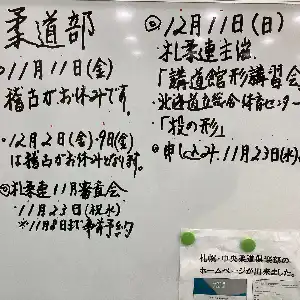 柔道部
○11月11日(金)
稽古がお休みです。
・12月2日(金)・9日(金)
は稽古がお休みとなります。
◎札柔連11月審査会
・11月23日(祝水)
※11月8日まで事前予約
◎12月11日(日)
札柔連主催
「講道館形講習会
・北海道立総合体育センター
「投の形」
◎申し込み、11月23日(水)
札幌・中央柔道倶楽部の
ホームページが出来ました。